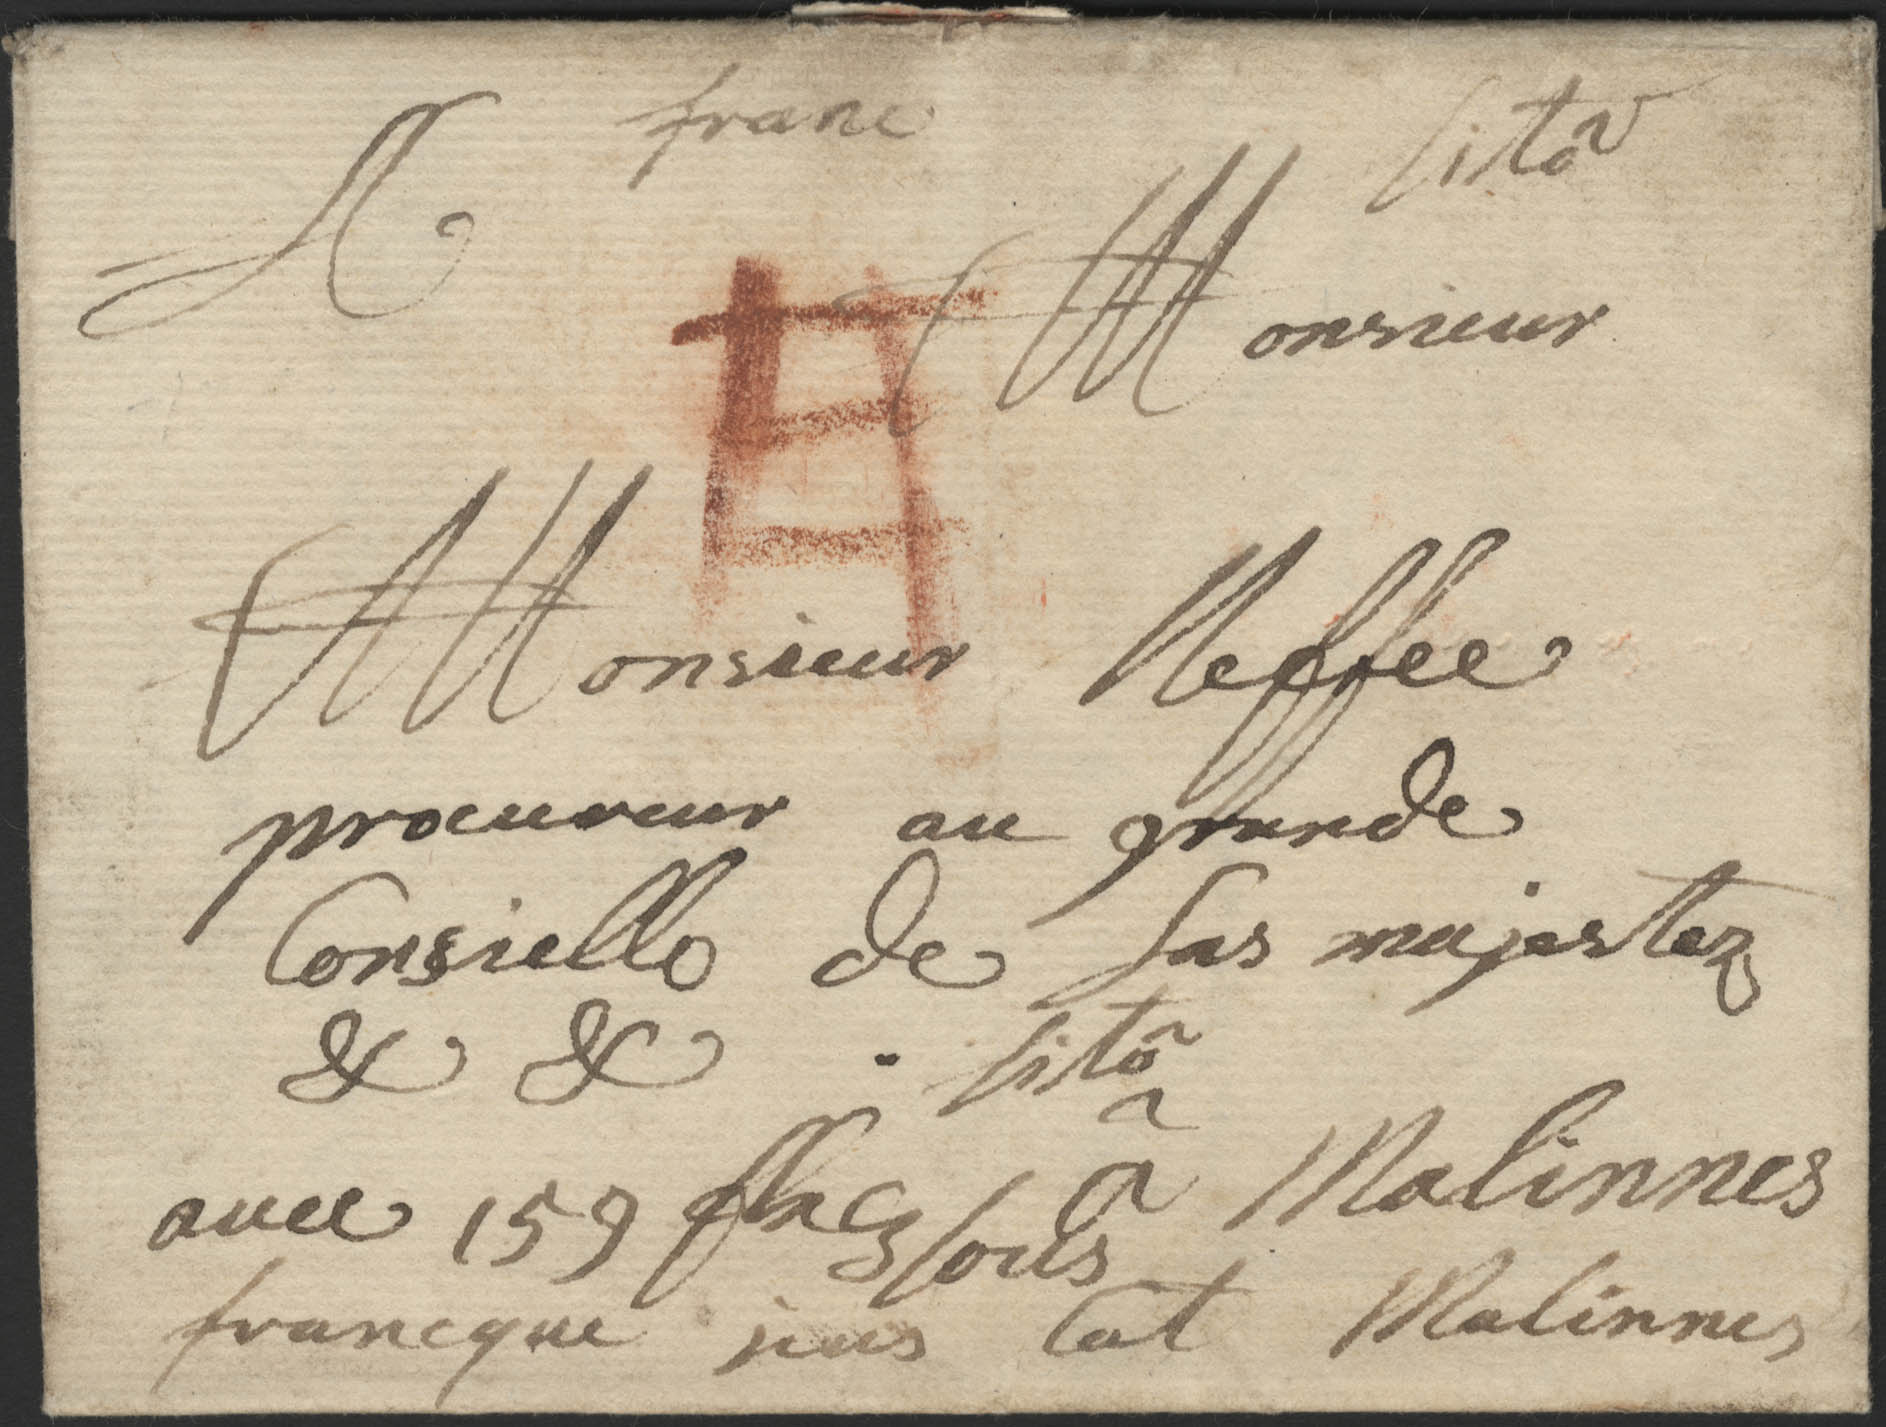 franc citõ
A Monsieur
Monsieur Neffee
procureur au grande
Consiello de sas majestez
& & . citõ
avec 159 a Malinnes
francque jus Malinnes